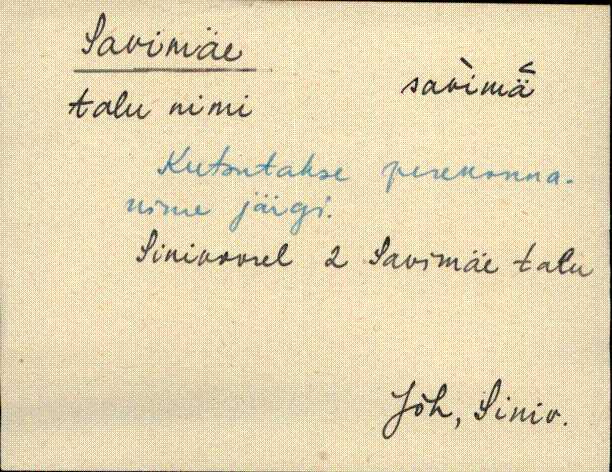 Savimäe
savimä
talu nimi
Kutsutakse perekonna-
nime järgi.
Sinivoorel 2 Savimäe talu
Jõh, Siniv.